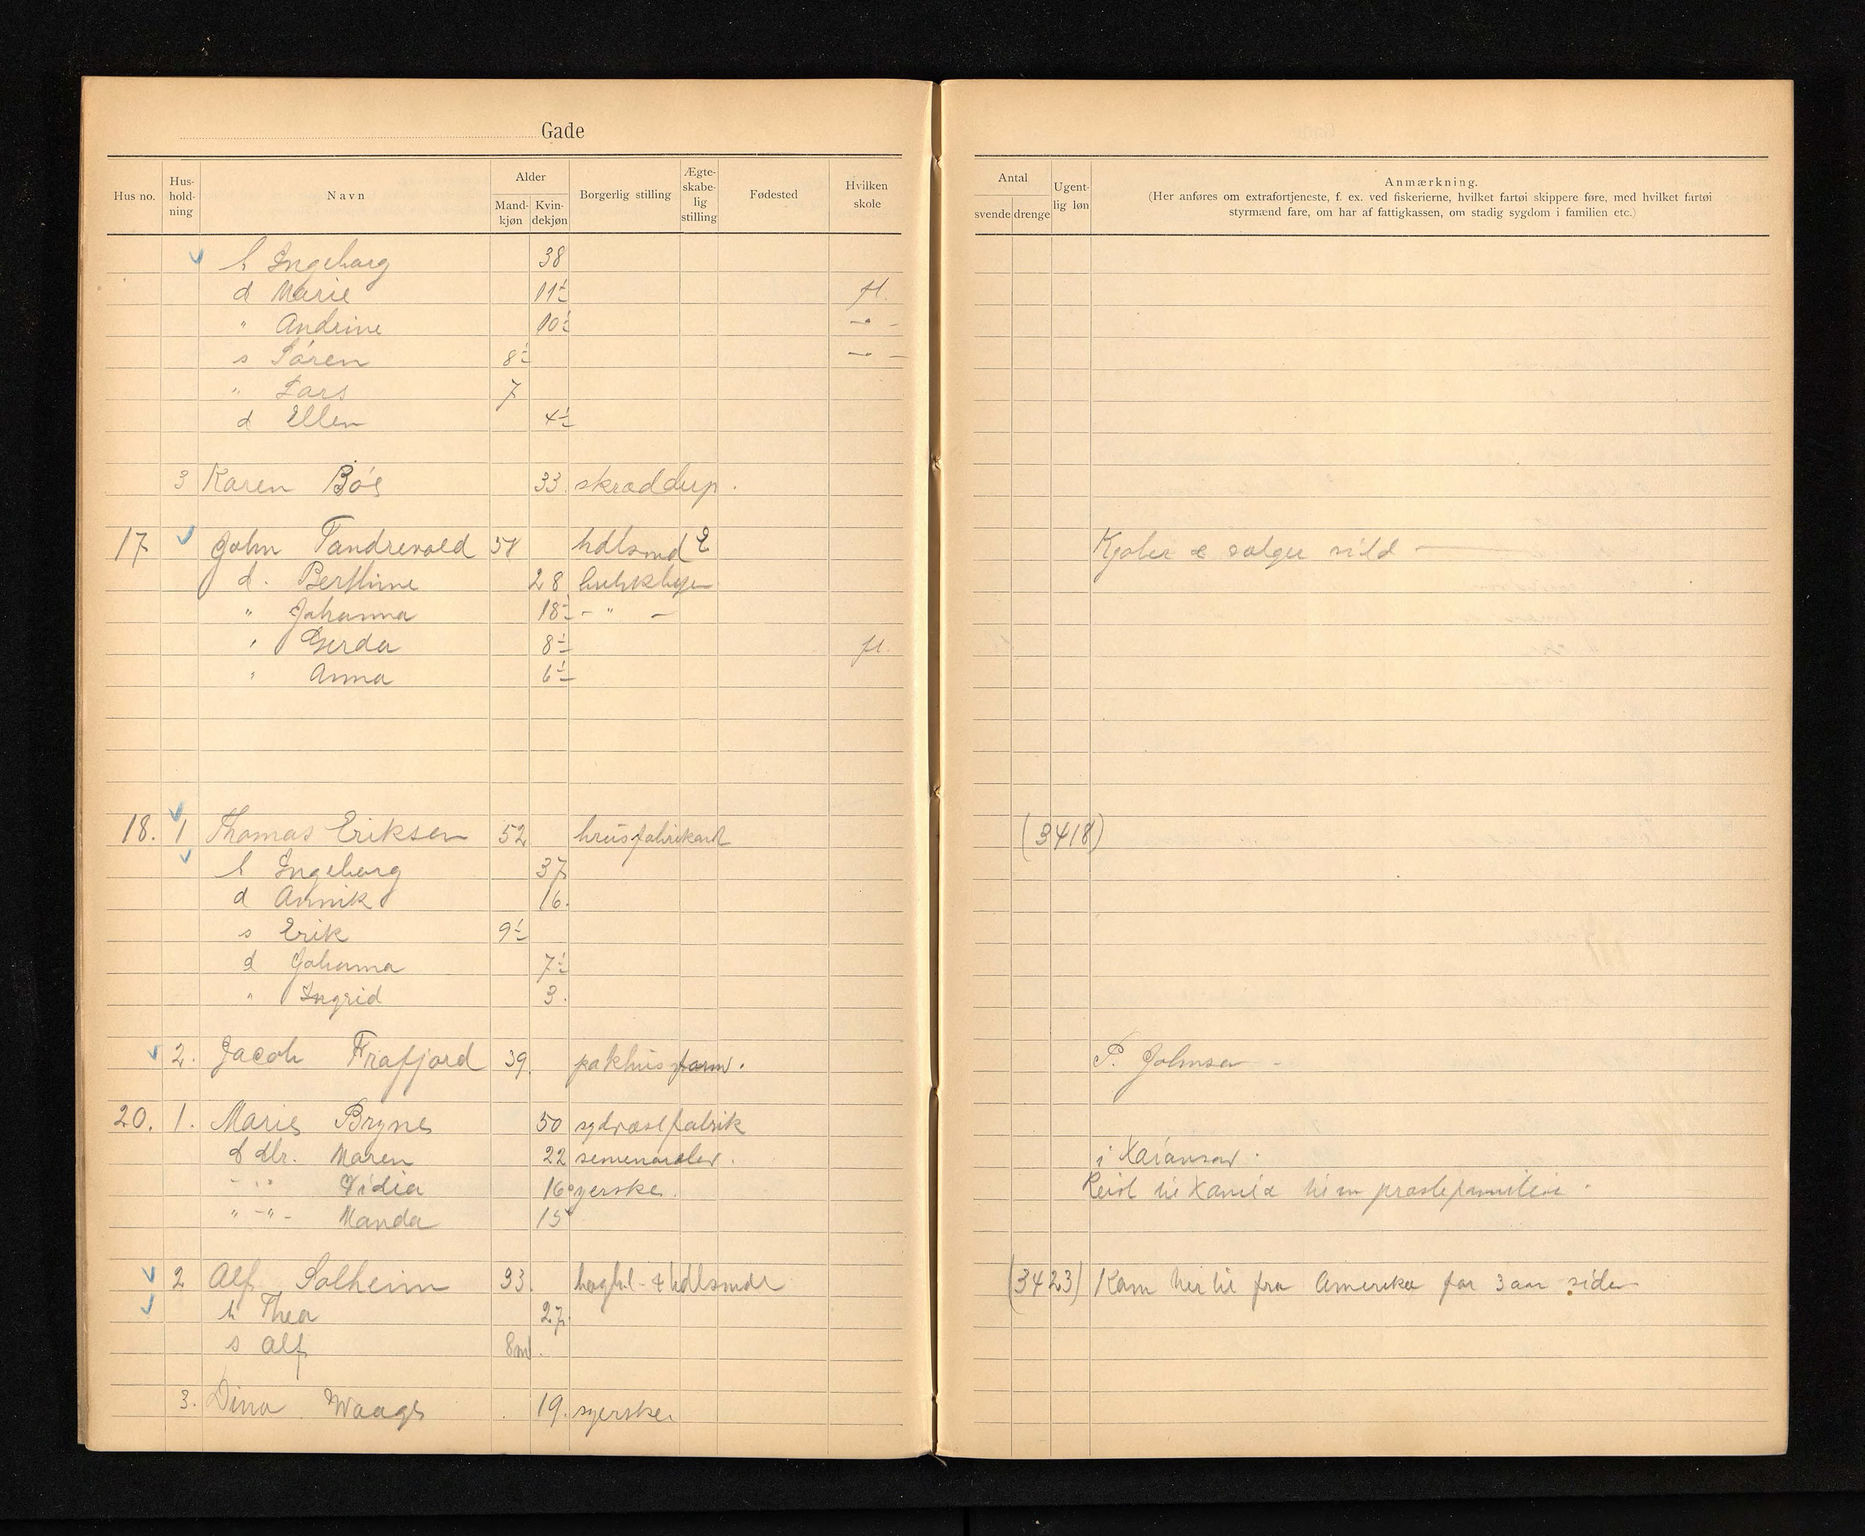 Gade
Hus no. Hus-hold-ning Navn Alder Mand-kjøn Kvin-dekjøn Borgerlig stilling Ægte-skabe-lig stilling Fødested Hvilken skole
Antal svende drenge Ugent-lig løn Anmærkning.
(Her anføres om extrafortjeneste, f. ex. ved fiskerierne, hvilket fartøi skippere føre, med hvilket fartøi
styrmænd fare, om har af fattigkassen, om stadig sygdom i familien etc.)
h Ingeborg 38
d Marie 11½ fl.
" Andrine 10½ — " —
s Søren 8½ — " —
" Lars 7
d Ellen 4½
3 Karen Bøe 33 skrædderp.
17 John Tandrevold 58 hdlsmd E Kjøber & sælger sild
d. Berthine 28 butikbest
" Johanna 18½ - " -
" Gerda 8½ fl.
" Anna 6½
18. 1 Thomas Eriksen 52 brusfabrikant (3418)
h Ingeborg 37
d Annik 16.
s Erik 9½
d Johanna 7½
" Ingrid 3.
2. Jacob Frafjord 39. pakhusform. P. Johnsen
20. 1. Marie Bryne 50 sydvestfabrik
d dtr. Maren 22 i
- " - Vidia 16 syerske. Reist til
" - " - Manda 15
2 Alf Solheim 33. & hdlsmd (3423) Kom her til fra Amerika for 3 aar siden
h Thea 27.
s Alf 8m.
3. Dina Waage 19. syerske